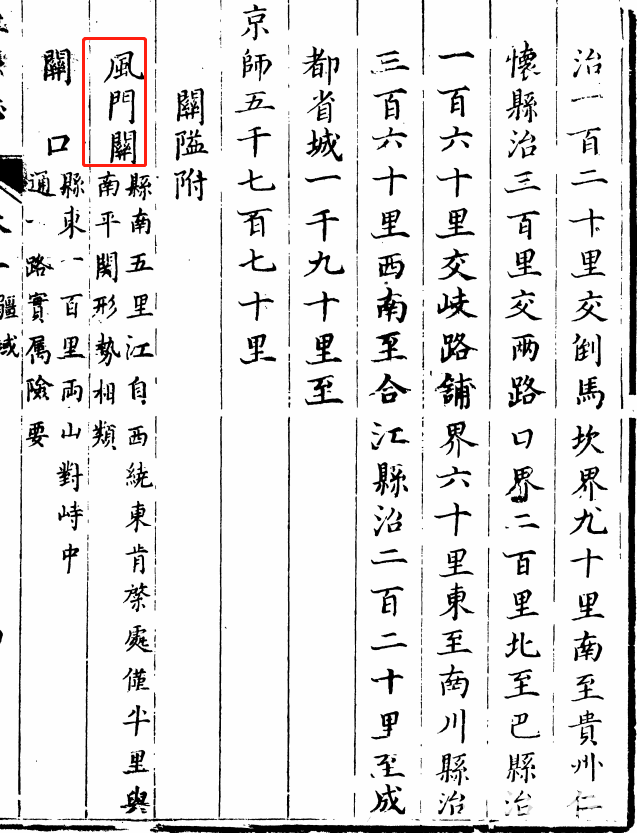 治一百二十里交倒馬坎界九十里南至貴州仁
懷縣治三百里交兩路口界二百里北至巴縣治
一百六十里交岐路舖界六十里東至南川縣治
三百六十里西南至合江縣治二百二十里至成
都省城一千九十里至
京師五千七百七十里
關隘附
風門關
縣南五里江自西繞東肯綮處僅半里與
南平関形勢相類
關口
縣東一百里両山對峙中
通一路實属險要
疆域